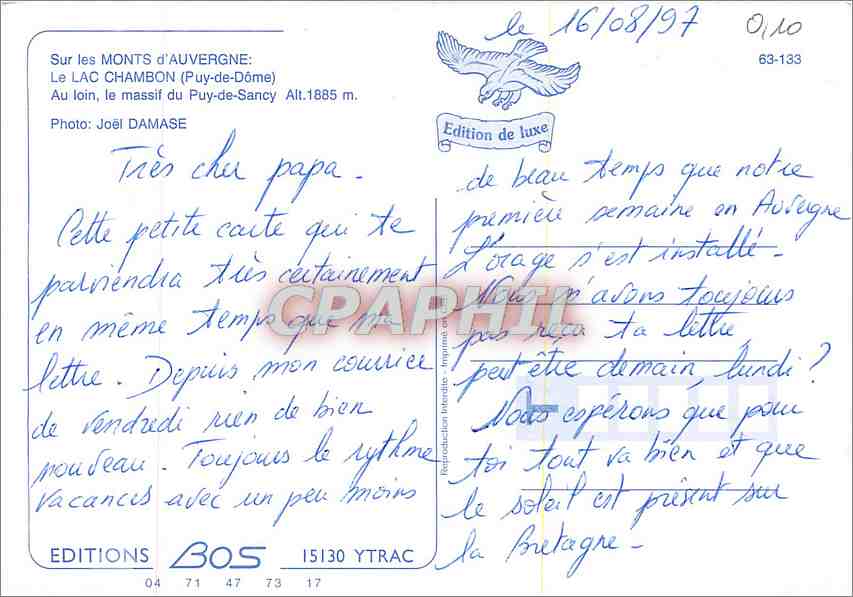 le 16/08/97
0,10
63-133
Sur les MONTS d'AUVERGNE:
Le LAC CHAMBON (Puy-de-Dôme)
Au loin, le massif du Puy-de-Sancy Alt.1885 m.
Photo: Joël DAMASE
Edition de luxe
Très cher papa.
Cette petite carte qui te
parviendra très certainement
en même temps que ma
lettre. Depuis mon courrier
de vendredi rien de bien
nouveau. Toujours le rythme
vacances avec un peu moins
de beau temps que notre
première semaine en Auvergne
L'orage s'est installé.
Nous n'avons toujours
pas reçu ta lettre,
peut être demain, lundi?
Nous espérons que pour
toi tout va bien et que
le soleil est présent sur
la Bretagne.
CPARPHIL
Reproduction Interdite - Imprimé en
EDITIONS BOS 15130 YTRAC
04 71 47 73 17